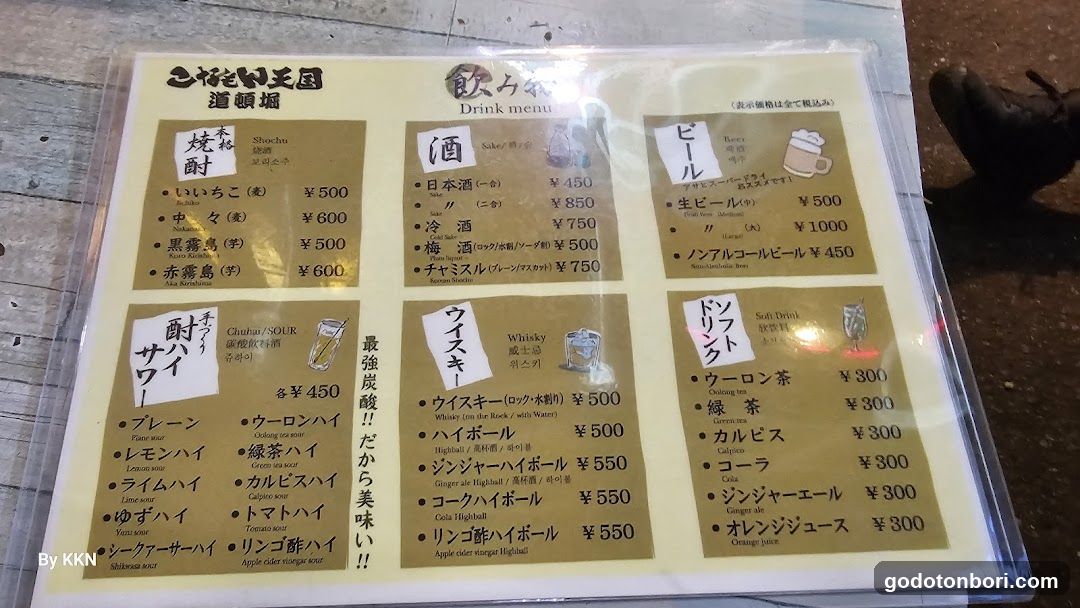 こなもん王国
道頓堀
飲み物
Drink menu
(表示価格は全て税込み)
本格
焼酎
Shochu
烧酒
보리소주
いいちこ(麦) ¥500
Iichiko
中々(麦) ¥600
Nakanaka
黒霧島(芋) ¥500
Kuro Kirishima
赤霧島(芋) ¥600
Aka Kirishima
酒
Sake/酒/술
日本酒(一合) ¥450
Sake
〃(二合) ¥850
Sake
冷酒 ¥750
Cold Sake
梅酒(ロック/水割/ソーダ割) ¥500
Plum liquor
チャミスル(プレーン/マスカット) ¥750
Korean Shochu
ビール
Beer
啤酒
맥주
アサヒスーパードライ
おススメです!
生ビール(中) ¥500
Draft beer (Medium)
〃(大) ¥1000
(Large)
ノンアルコールビール ¥450
Non-Alcoholic Beer
手つくり
酎ハイ
サワー
Chuhai/SOUR
碳酸飲料酒
츄하이
各¥450
プレーン
Plane sour
レモンハイ
Lemon sour
ライムハイ
Lime sour
ゆずハイ
Yuzu sour
シークァーサーハイ
Shikwasa sour
ウーロンハイ
Oolong tea sour
緑茶ハイ
Green tea sour
カルピスハイ
Calpico sour
トマトハイ
Tomato sour
リンゴ酢ハイ
Apple cider vinegar sour
最強炭酸!!だから美味い!!
ウイスキー
Whisky
威士忌
위스키
ウイスキー(ロック・水割り) ¥500
Whisky (on the Rock / with Water)
ハイボール ¥500
Highball / 高杯酒 / 하이볼
ジンジャーハイボール ¥550
Ginger ale Highball / 高杯酒 / 하이볼
コークハイボール ¥550
Cola Highball
リンゴ酢ハイボール ¥550
Apple cider vinegar Highball
ソフト
ドリンク
Soft Drink
ウーロン茶 ¥300
Oolong tea
緑茶 ¥300
Green tea
カルピス ¥300
Calpico
コーラ ¥300
Cola
ジンジャーエール ¥300
Ginger ale
オレンジジュース ¥300
Orange juice
By KKN
godotonbori.com